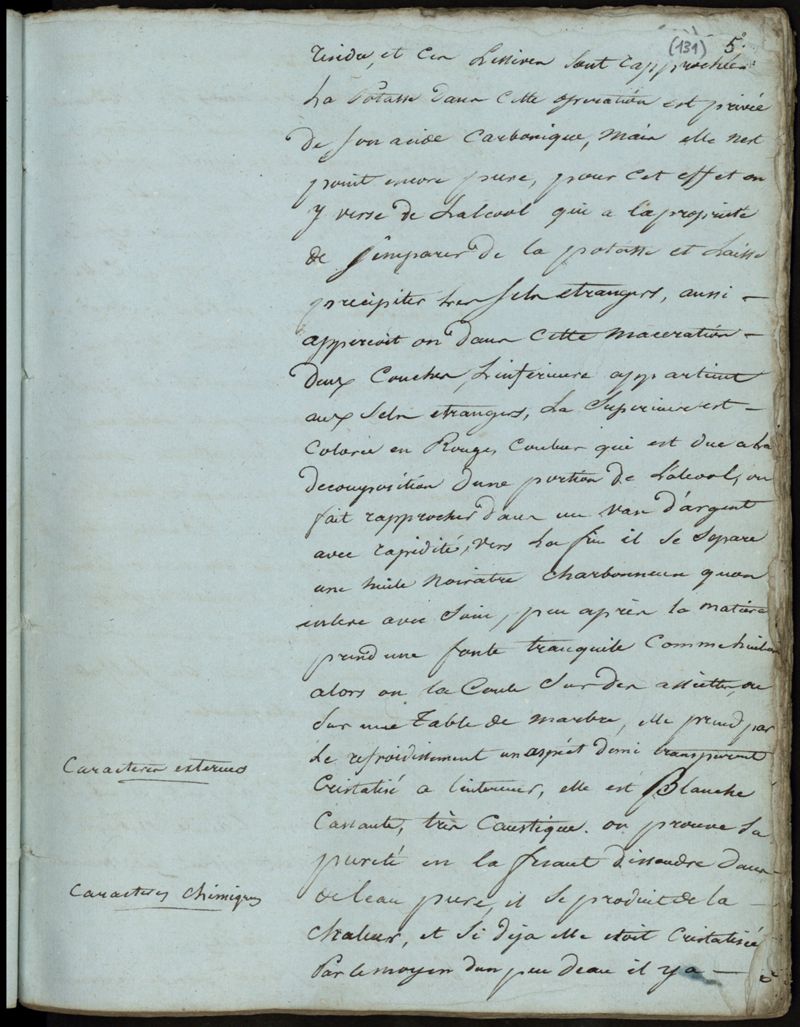 (131) 5.°
résidu, et ces Lessives sont rapprochées
La Potasse dans cette operation est privée
de son acide Carbonique, mais elle nest
point encore pure, pour cet effet on
y verse de Lalcool qui a la propriete
de s'emparer de la potasse et Laisse
precipiter les sels etrangers, aussi –
apperçoit on dans cette maceration –
deux Couches, L'inferieure appartient
aux sels etrangers, La Superieure est –
Colorée en Rouge, Couleur qui est due a la
decomposition d'une portion de L'alcool, on
fait rapprocher dans un vase d'argent
avec rapidité, vers La fin il se separe
une huile noiratre charbonneuse quon
enleve avec soin, peu après la matiere
prend une fonte tranquile Comme huile
alors on la Coule sur des assiettes, ou
sur une Table de marbre, elle prend par
Le refroidissement un aspect demi transparent
Caracteres externes
Cristalisé a l'interieur, elle est Blanche
Cassante, très Caustique. on prouve sa
pureté en la faisant dissoudre dans
Caracteres chimiques
de leau pure, il se produit de la –
chaleur, et si deja elle etoit Cristalisée
Par le moyen d'un peu deau il y a –